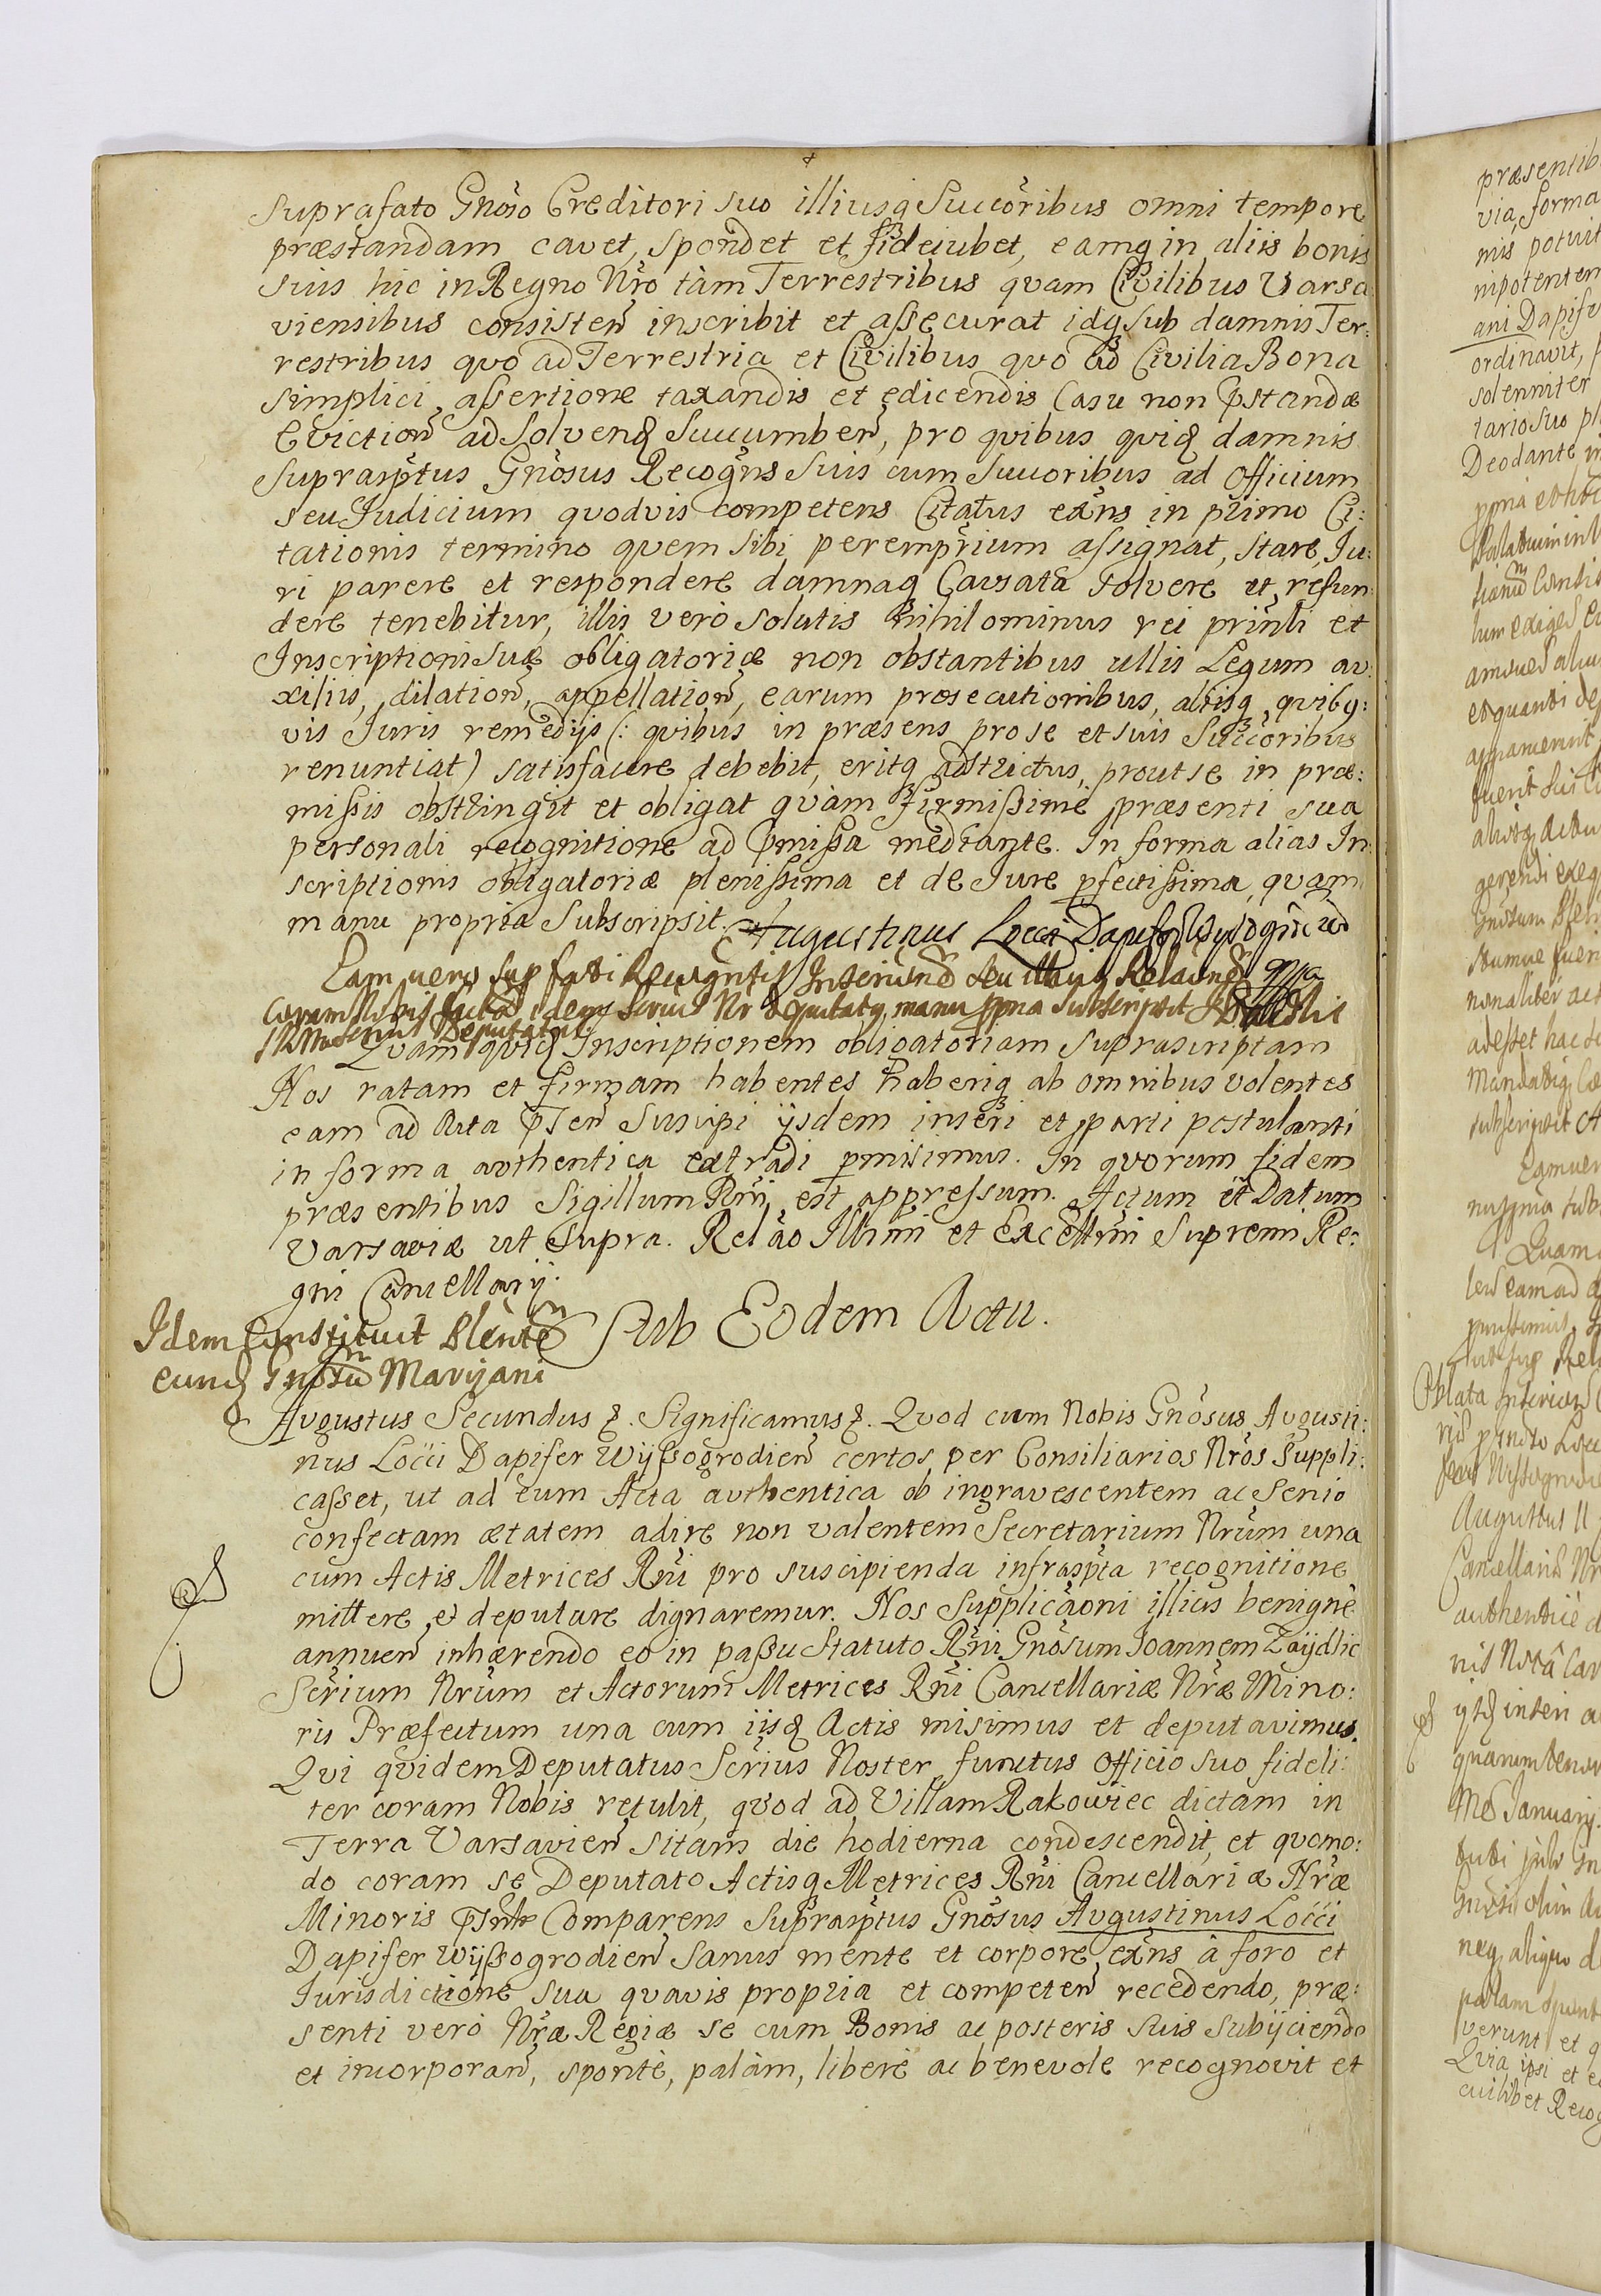 suprafato Gnoso Creditori suo illiusq Succoribus omni tempore
præstandam cavet, spondet et fideiubet, eamq in aliis bonis
suis hic in Regno Nro tàm Terrestribus quam Civilibus Varsa
viensibus consisten inscribit et assecurat idq sub damnis Ter:
restribus quo ad Terrestria et Civilibus quo ad Civilia Bona
simplici assertione taxandis et edicendis Casu non pstandæ
Eviction ad solvend Succumben, pro quibus quid damnis
suprasptus Gnosus Recogns suis cum Succoribus ad Officium
seu Iudicium quodvis competens Citatus exns in primo Ci:
tationis termino quem sibi peremprium assignat, stare, Iu:
ri parere et respondere damnaq Causata solvere et refun
dere tenebitur, illis verò solutis nihilominus rei prinli et
Inscriptioni suæ obligatoriæ non obstantibus ullis Legum au:
xiliis, dilation, appellation, earum prosecutionibus, aliisq quibq:
vis Iuris remedijs (: quibus in præsens pro se et suis Succoribus
renuntiat) satisfacere debebit, eritq adstrictus, prout se in præ:
missis obstringit et obligat quàm firmissimè præsenti sua
personali recognitione ad pmissa mediante. In forma alias In
scriptionis obligatoriæ plenissima et de Iure pfectissima, quam
manu propria subscripsit. Augustinus Locci Dapifer
Eam vero supfati Recogntis Inscriptnem seu illius Relacnem
coram Nobis factam idem Serius Nr Deputatq manu ppria subscripsit
Deputatus
Quam quid Inscriptionem obligatoriam suprascriptam
Nos ratam et firmam habentes haberiq ab omnibus volentes
eam ad Acta pten suscipi ijsdem inseri et parti postulanti
in forma authentica extradi pmisimus. In quorum fidem
præsentibus Sigillum Rni est appressum. Actum et Datum
Varsaviæ ut supra. Relao Illmi et Excellmi Supremi Re:
gni Cancellarij.
Sub Eodem Actu.
Idem Constituit Plente
eund Gnosu Maryani
Augustus Secundus &. Significamus &. Quod cum Nobis Gnosus Augusti:
nus Locci Dapifer Wyssogrodien certos per Consiliarios Nros suppli:
casset, ut ad eum Acta authentica ob ingravescentem ac senio
confectam ætatem adire non valentem Secretarium Nrum una
cum Actis Metrices Rni pro suscipienda infraspta recognitione
mittere et deputare dignaremur. Nos Supplicaoni illius benignè
annuen inhærendo eo in passu Statuto Rni Gnosum Ioannem Zaydlic
Serium Nrum et Actorum Metrices Rni Cancellariæ Nræ Mino:
ris Præfectum una cum iisd Actis misimus et deputavimus.
Qui quidem Deputatus Serius Noster functus Officio suo fideli:
ter coram Nobis retulit, quod ad Villam Rakowiec dictam in
Terra Varsavien sitam die hodierna condescendit, et quomo:
do coram se Deputato Actisq Metrices Rni Cancellariæ Nræ
Minoris psnter Comparens suprasptus Gnosus Augustinus Locci
Dapifer Wyssogrodien sanus mente et corpore exns à foro et
Iurisdictione sua quavis propria et competen recedendo, præ:
senti verò Nræ Regiæ se cum Bonis ac posteris suis subijciendo
et incorporan, spontè, palàm, liberè ac benevole recognovit et
præsentib
via, forma
mis potuit
nipotentem
ani Dapife
ordinavit,
solenniter
tario suo pl
Deodante in
gerendi exeq
non aliter act
adesset hac
subscripsit
Eam ver
Quam
leo eam ad
Oblata
Augustus II
Cancellaris Nr
authenticè
nis Notâ Can
ijsd inseri a
quarum tenor
Me Ianuarij
Gnosi olim Au
neq aliquo d
palam
verunt et q
Quia ipsi et e
cuilibet Recog